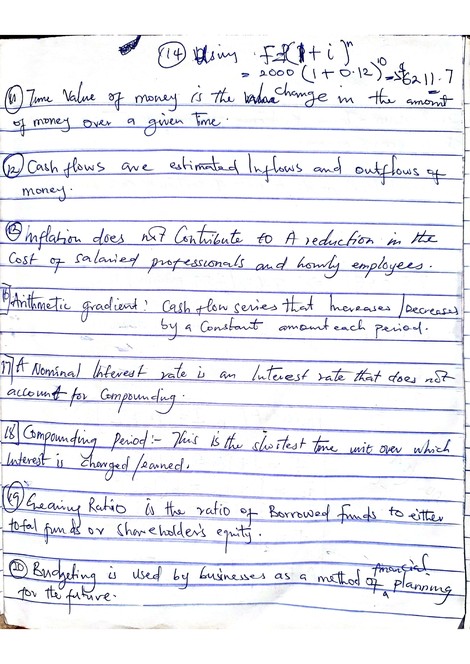 (14) Using F=P(1+i)^n
= 2000(1+0.12)^10 = $6211.7
(11) Time Value of money is the change in the amount
of money over a given time.
(12) Cash flows are estimated Inflows and outflows of
money.
(13) Inflation does not Contribute to A reduction in the
Cost of Salaried professionals and hourly employees.
Arithmetic gradient: Cash flow series that Increases/Decreases
by a Constant amount each period.
17] A Nominal Interest rate is an Interest rate that does not
account for Compounding.
18] Compounding Period:- This is the shortest time unit over which
Interest is Charged/earned.
(19) Gearing Ratio is the ratio of Borrowed funds to either
total funds or Shareholder's equity.
(20) Budgeting is used by businesses as a method of financial planning
for the future.